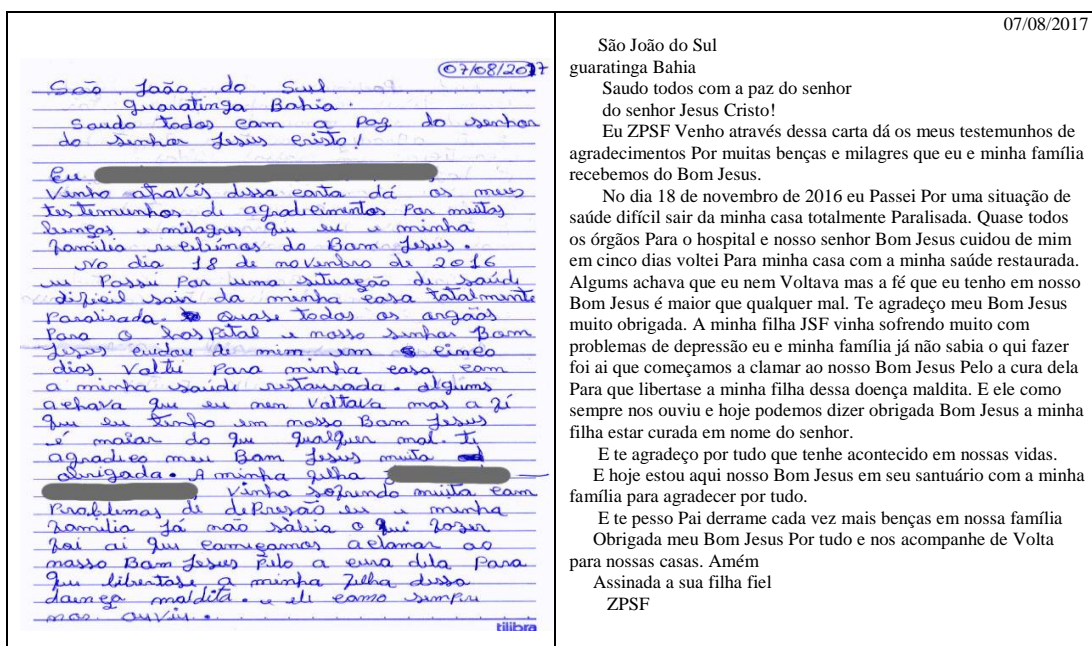 07/08/2017
São João do Sul
guaratinga Bahia.
Saudo todos com a paz do senhor
do senhor Jesus cristo!
Eu
Venho através dessa carta dá os meus
testemunhos de agradecimentos Por muitas
benças e milagres que eu e minha
família recebemos do Bom Jesus.
No dia 18 de novembro de 2016
eu Passei Por uma situação de saúde
difícil sair da minha casa totalmente
Paralisada. Quase todos os orgãos
Para o hospital e nosso senhor Bom
Jesus cuidou de mim em cinco
dias Voltei Para minha casa com
a minha saúde restaurada. Alguims
achava que eu nem Voltava mas a fé
que eu tenho em nosso Bom Jesus
é maior do que qualquer mal. Te
agradeço meu Bom Jesus muito
obrigada. A minha filha
Vinha sofrendo muito com
Problemas de depresão eu e minha
família Já não sabia o qui fazer
foi ai que começamos a clamar ao
nosso Bom Jesus Pelo a cura dela Para
que libertase a minha filha dessa
doença maldita. e ele como sempre
nos ouviu.
tilibra
07/08/2017
São João do Sul
guaratinga Bahia
Saudo todos com a paz do senhor
do senhor Jesus Cristo!
Eu ZPSF Venho através dessa carta dá os meus testemunhos de
agradecimentos Por muitas benças e milagres que eu e minha família
recebemos do Bom Jesus.
No dia 18 de novembro de 2016 eu Passei Por uma situação de
saúde difícil sair da minha casa totalmente Paralisada. Quase todos
os órgãos Para o hospital e nosso senhor Bom Jesus cuidou de mim
em cinco dias voltei Para minha casa com a minha saúde restaurada.
Algums achava que eu nem Voltava mas a fé que eu tenho em nosso
Bom Jesus é maior que qualquer mal. Te agradeço meu Bom Jesus
muito obrigada. A minha filha JSF vinha sofrendo muito com
problemas de depressão eu e minha família já não sabia o qui fazer
foi ai que começamos a clamar ao nosso Bom Jesus Pelo a cura dela
Para que libertase a minha filha dessa doença maldita. E ele como
sempre nos ouviu e hoje podemos dizer obrigada Bom Jesus a minha
filha estar curada em nome do senhor.
E te agradeço por tudo que tenhe acontecido em nossas vidas.
E hoje estou aqui nosso Bom Jesus em seu santuário com a minha
família para agradecer por tudo.
E te pesso Pai derrame cada vez mais benças em nossa família
Obrigada meu Bom Jesus Por tudo e nos acompanhe de Volta
para nossas casas. Amém
Assinada a sua filha fiel
ZPSF